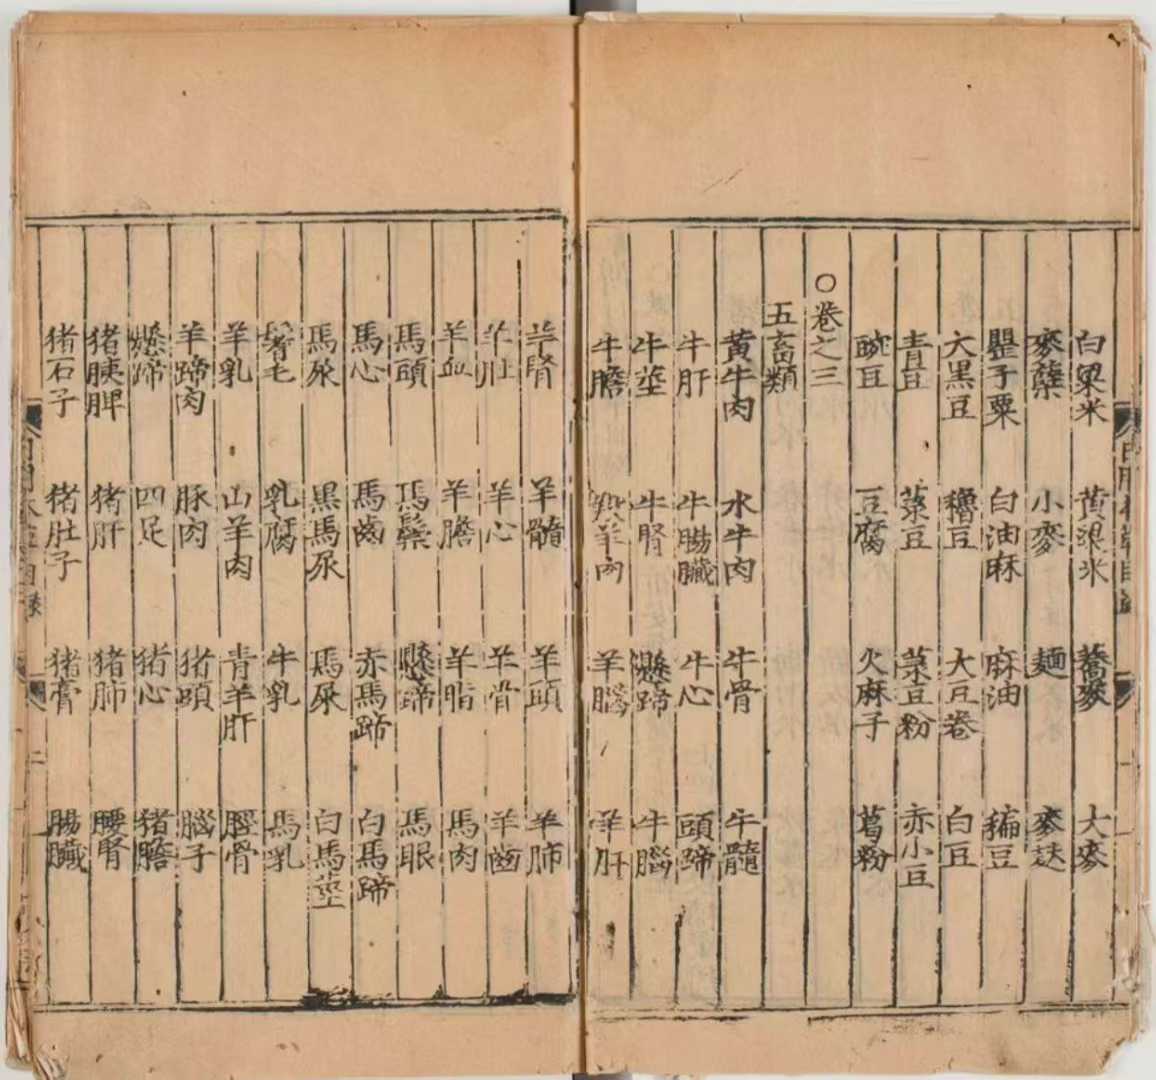 白粱米 黄粱米 蕎麥 大麥
麥蘖 小麥 麺 麥麸
罌子粟 白油麻 麻油 稨豆
大黑豆 穭豆 大豆卷 白豆
青豆 菉豆 菉豆粉 赤小豆
豌豆 豆腐 火麻子 葛粉
○卷之三
五畜類
黄牛肉 水牛肉 牛骨 牛髓
牛肝 牛腸臟 牛心 頭蹄
牛莖 牛腎 懸蹄 牛腦
牛膽 羊肉 羊腦 羊肝
羊腎 羊髓 羊頭 羊肺
羊肚 羊心 羊骨 羊齒
羊血 羊膽 羊脂 馬肉
馬頭 馬鬃 懸蹄 馬眼
馬心 馬齒 赤馬蹄 白馬蹄
馬尿 黑馬尿 馬屎 白馬莖
鬐毛 乳腐 牛乳 馬乳
羊乳 山羊肉 青羊肝 脛骨
羊蹄肉 豚肉 猪頭 腦子
懸蹄 四足 猪心 猪膽
猪胰脾 猪肝 猪肺 腰腎
猪石子 猪肚子 猪膏 腸臟